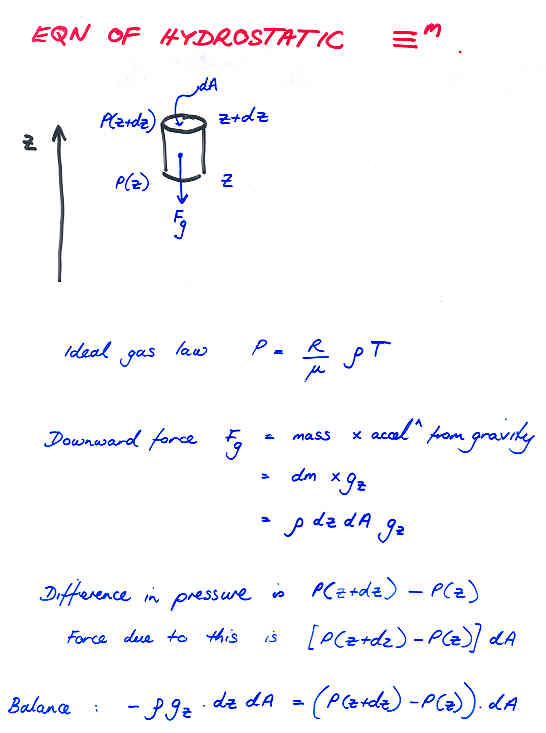 EQN OF HYDROSTATIC ≡ᵐ.
dA
P(z+dz) z+dz
z
P(z) z
Fg
Ideal gas law P = R/μ ρT
Downward force Fg = mass x accel^ from gravity
= dm x gz
= ρ dz dA gz
Difference in pressure is P(z+dz) - P(z)
Force due to this is [P(z+dz) - P(z)] dA
Balance : - ρ gz . dz dA = (P(z+dz) - P(z)) . dA